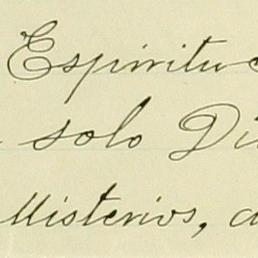 Espiritu
solo Di
Misterios, a